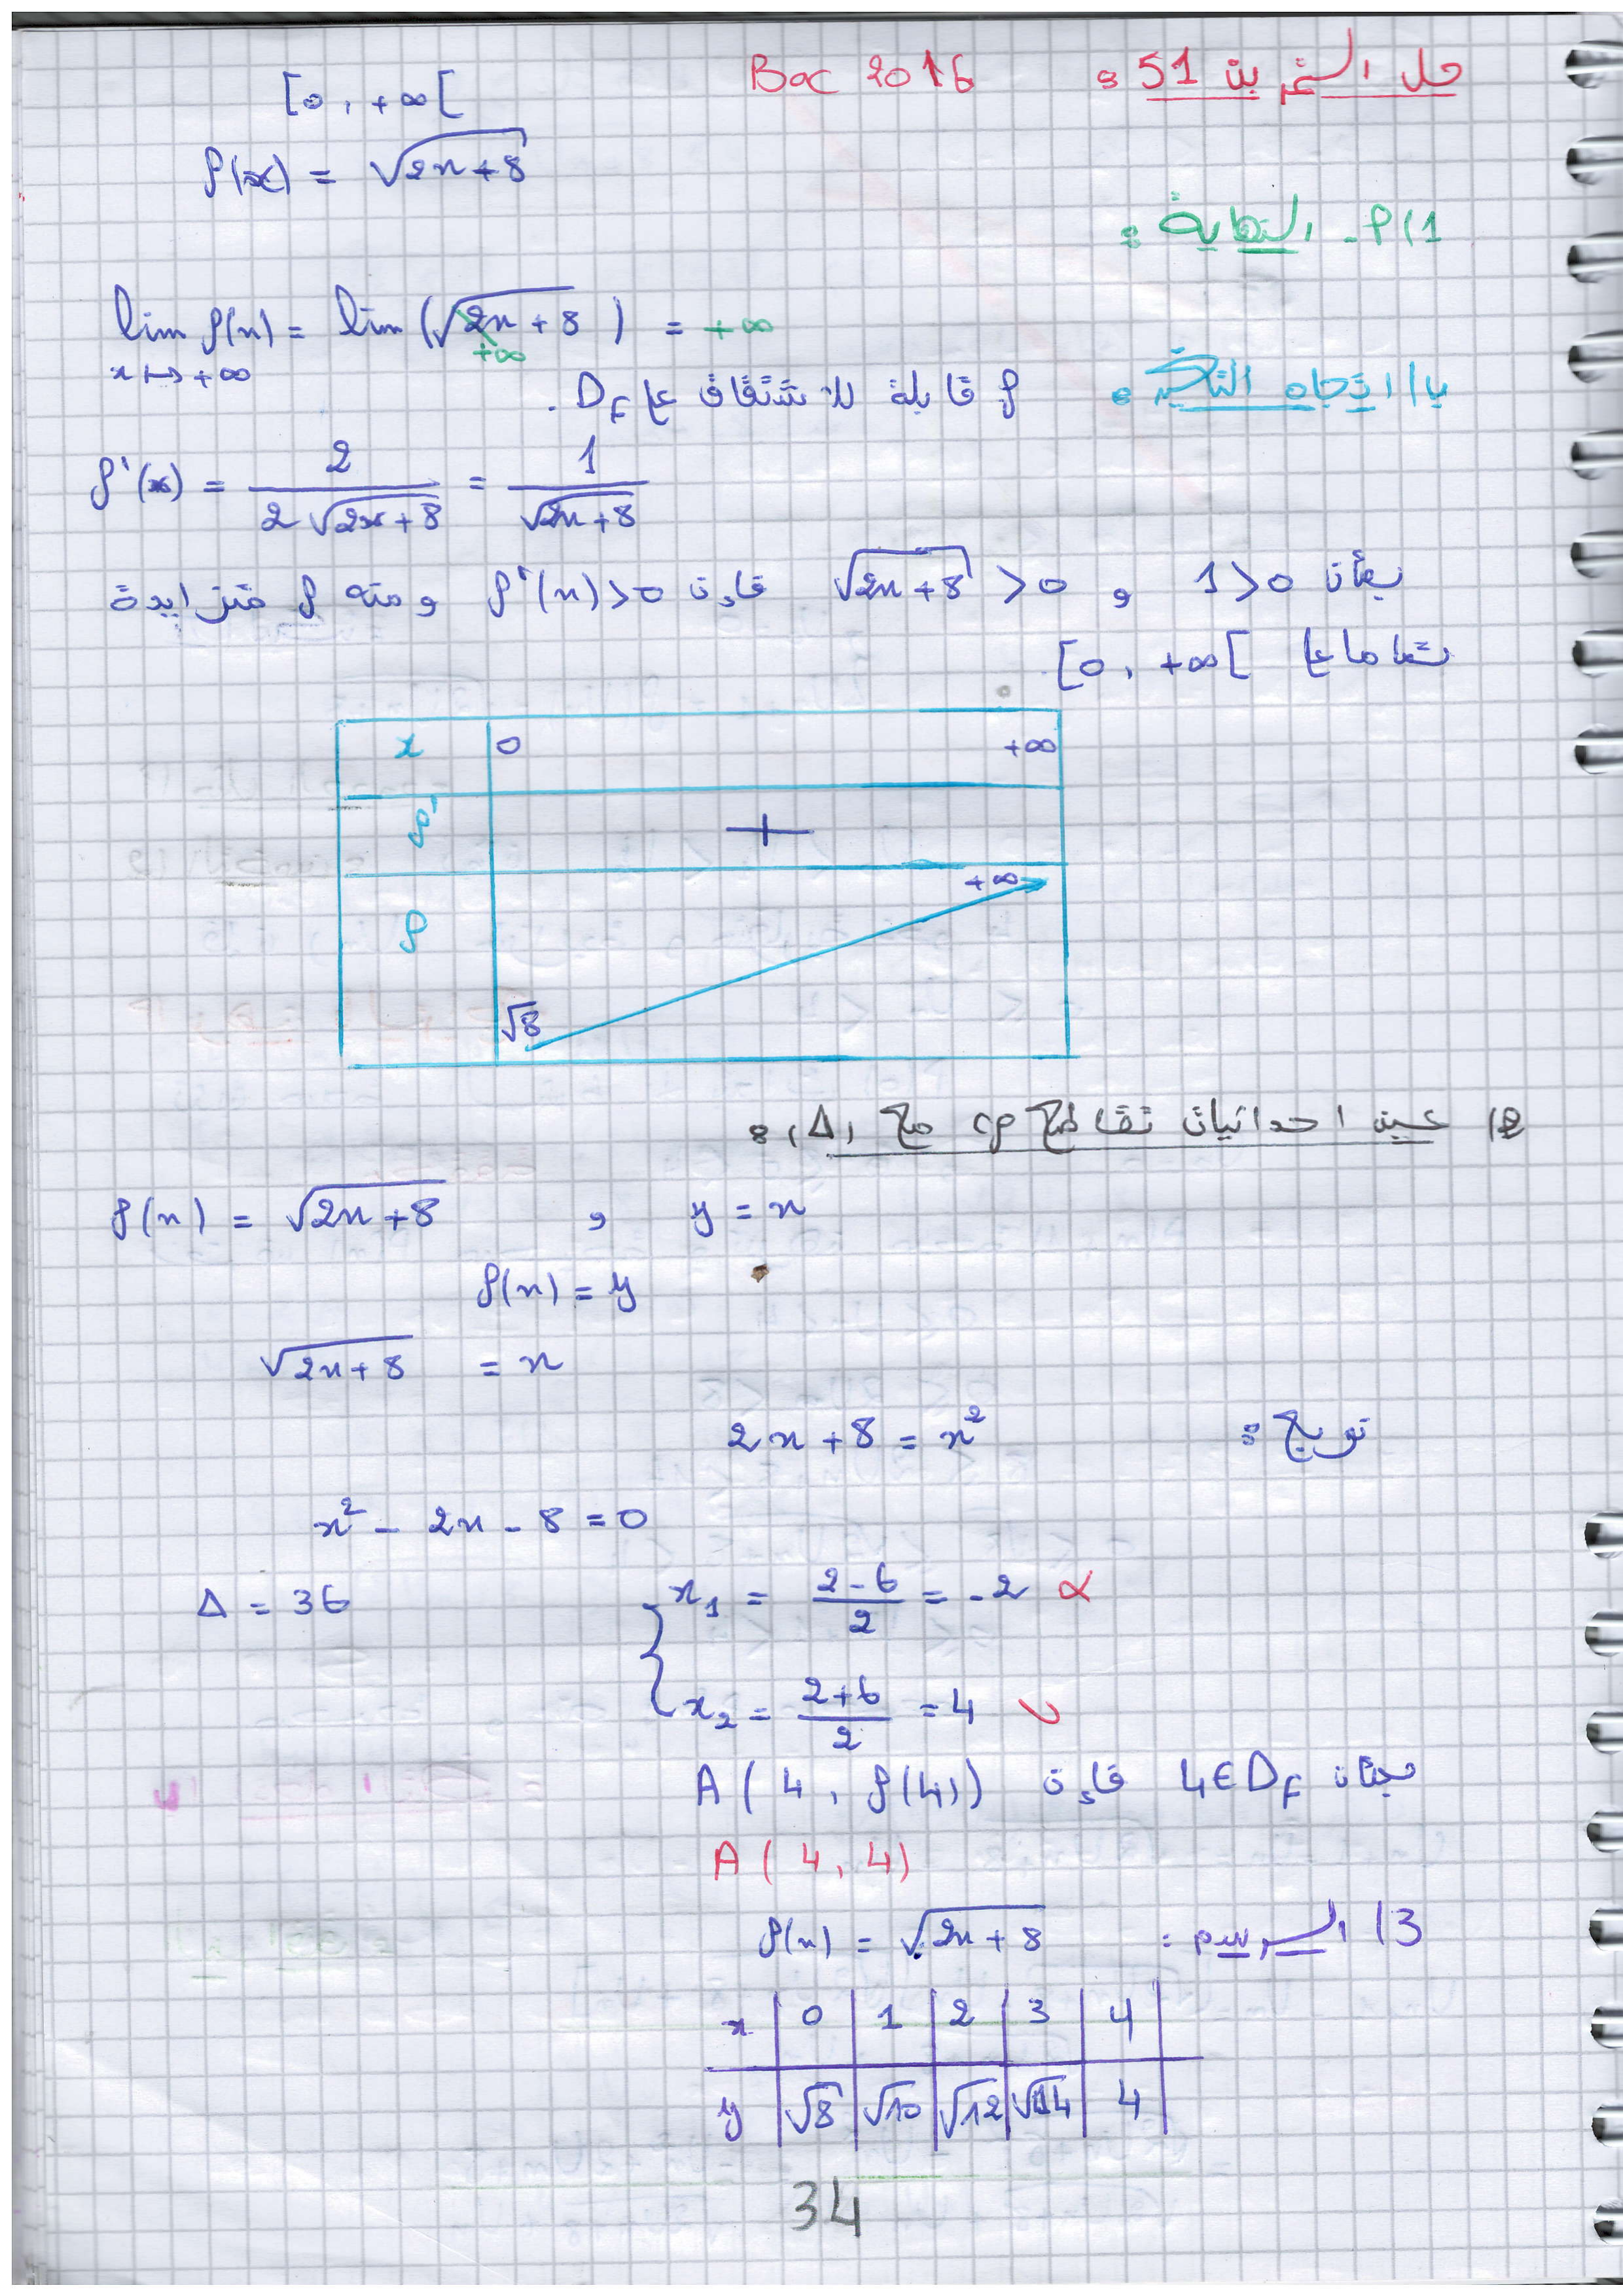 حل التمرين 51 : Bac 2016
[0, +∞[
f(x) = √(2x+8)
1) P- النهاية :
lim f(x) = lim (√(2x+8)) = +∞
x↦+∞ +∞
ب) اتجاه التغير :
f قابلة للاشتقاق على Df.
f'(x) = 2/(2√(2x+8)) = 1/√(2x+8)
بمأن 1>0 و √(2x+8) >0 فإن f'(x)>0 ومنه f متزايدة
تماما على [0, +∞[
x 0 +∞
f' +
f √8 +∞
2) عين احداثيات تقاطع cf مع (Δ) :
f(x) = √(2x+8) , y = x
f(x) = y
√(2x+8) = x
تربيع : 2x+8 = x²
x² - 2x - 8 = 0
Δ = 36
x₁ = (2-6)/2 = -2
x₂ = (2+6)/2 = 4
بمأن 4∈Df فإن A(4, f(4))
A(4, 4)
3) الرسم : f(x) = √(2x+8)
x 0 1 2 3 4
y √8 √10 √12 √14 4
34